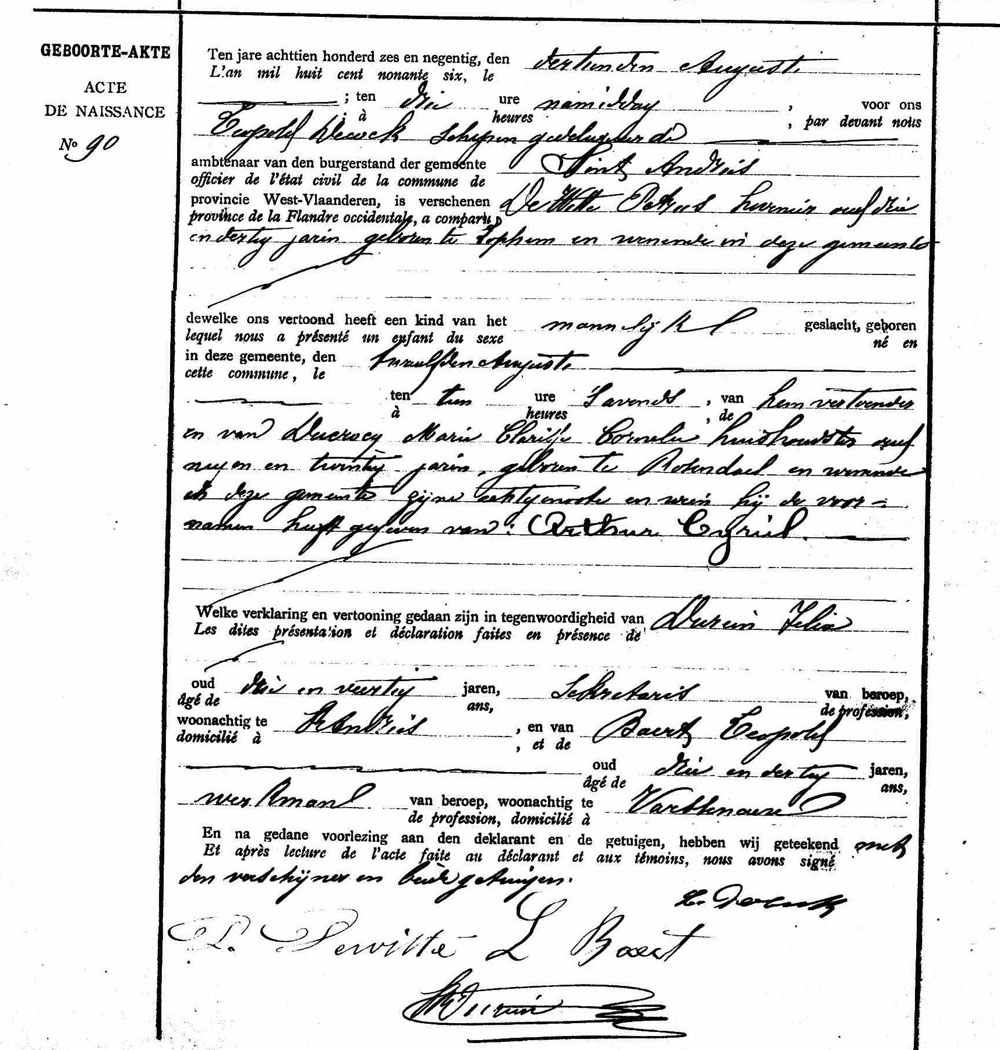 GEBOORTE-AKTE
ACTE
DE NAISSANCE
No 90
Ten jare achttien honderd zes en negentig, den dertienden Augusti
L'an mil huit cent nonante six, le
; ten drie ure namiddag , voor ons
à heures , par devant nous
Leopold Decock Schepen gedelegueerde
ambtenaar van den burgerstand der gemeente Sint Andries
officier de l'état civil de la commune de
provincie West-Vlaanderen, is verschenen De Witte Petrus hovenier oud drie
province de la Flandre occidentale, a comparu
en dertig jaren geboren te Lophem en wonende in deze gemeente
dewelke ons vertoond heeft een kind van het mannelijk geslacht, geboren
lequel nous a présenté un enfant du sexe né en
in deze gemeente, den twaalfden Augusti
cette commune, le
ten tien ure 's avonds , van hem vertooner
à heures , de
en van Marie Clarisse Cornelie huishoudster oud
negen en twintig jaren, geboren te Rosendael en wonende
in deze gemeente zijne echtgenoote en wien hij de voor=
namen heeft gegeven van: Arthur Cyriel.
Welke verklaring en vertooning gedaan zijn in tegenwoordigheid van Felix
Les dites présentation et déclaration faites en présence de
oud drie en veertig jaren, Sekretaris van beroep,
âgé de ans, de profession,
woonachtig te St Andries , en van Baert Leopold
domicilié à , et de
oud drie en dertig jaren,
âgé de ans,
werkman van beroep, woonachtig te Varssenaere
de profession, domicilié à
En na gedane voorlezing aan den deklarant en de getuigen, hebben wij geteekend met
Et après lecture de l'acte faite au déclarant et aux témoins, nous avons signé
den verschijner en beide getuigen.
L. Decock
P. Dewitte L Baert